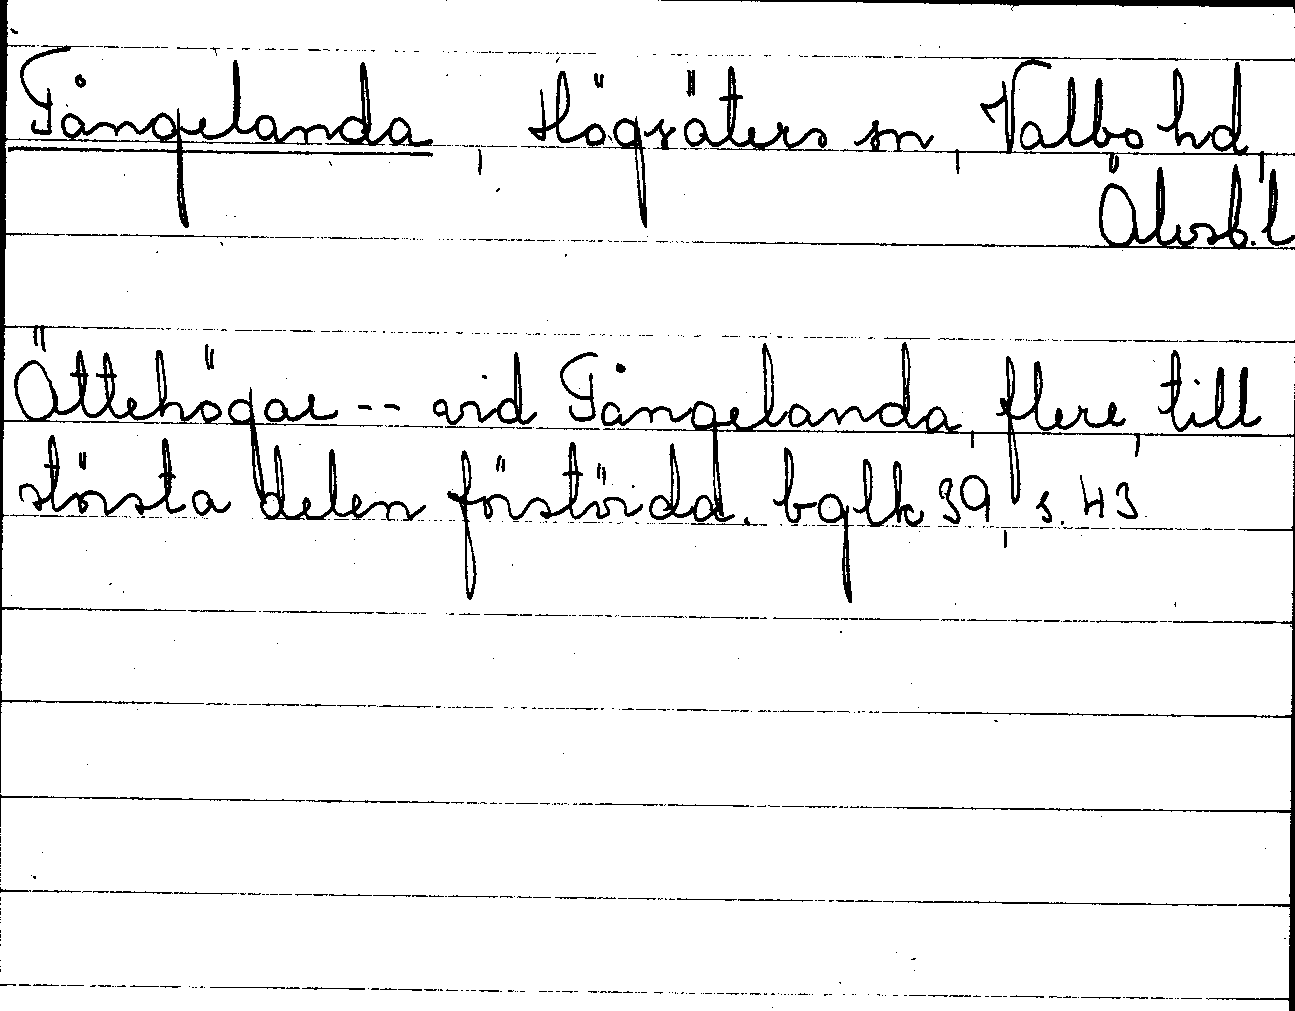 Tångelanda, Högsäters sn, Valbo hd,
Älvsb. l
Ättehögar -- vid Tångelanda, flere, till
största delen förstörda. bglk 39, s. 43